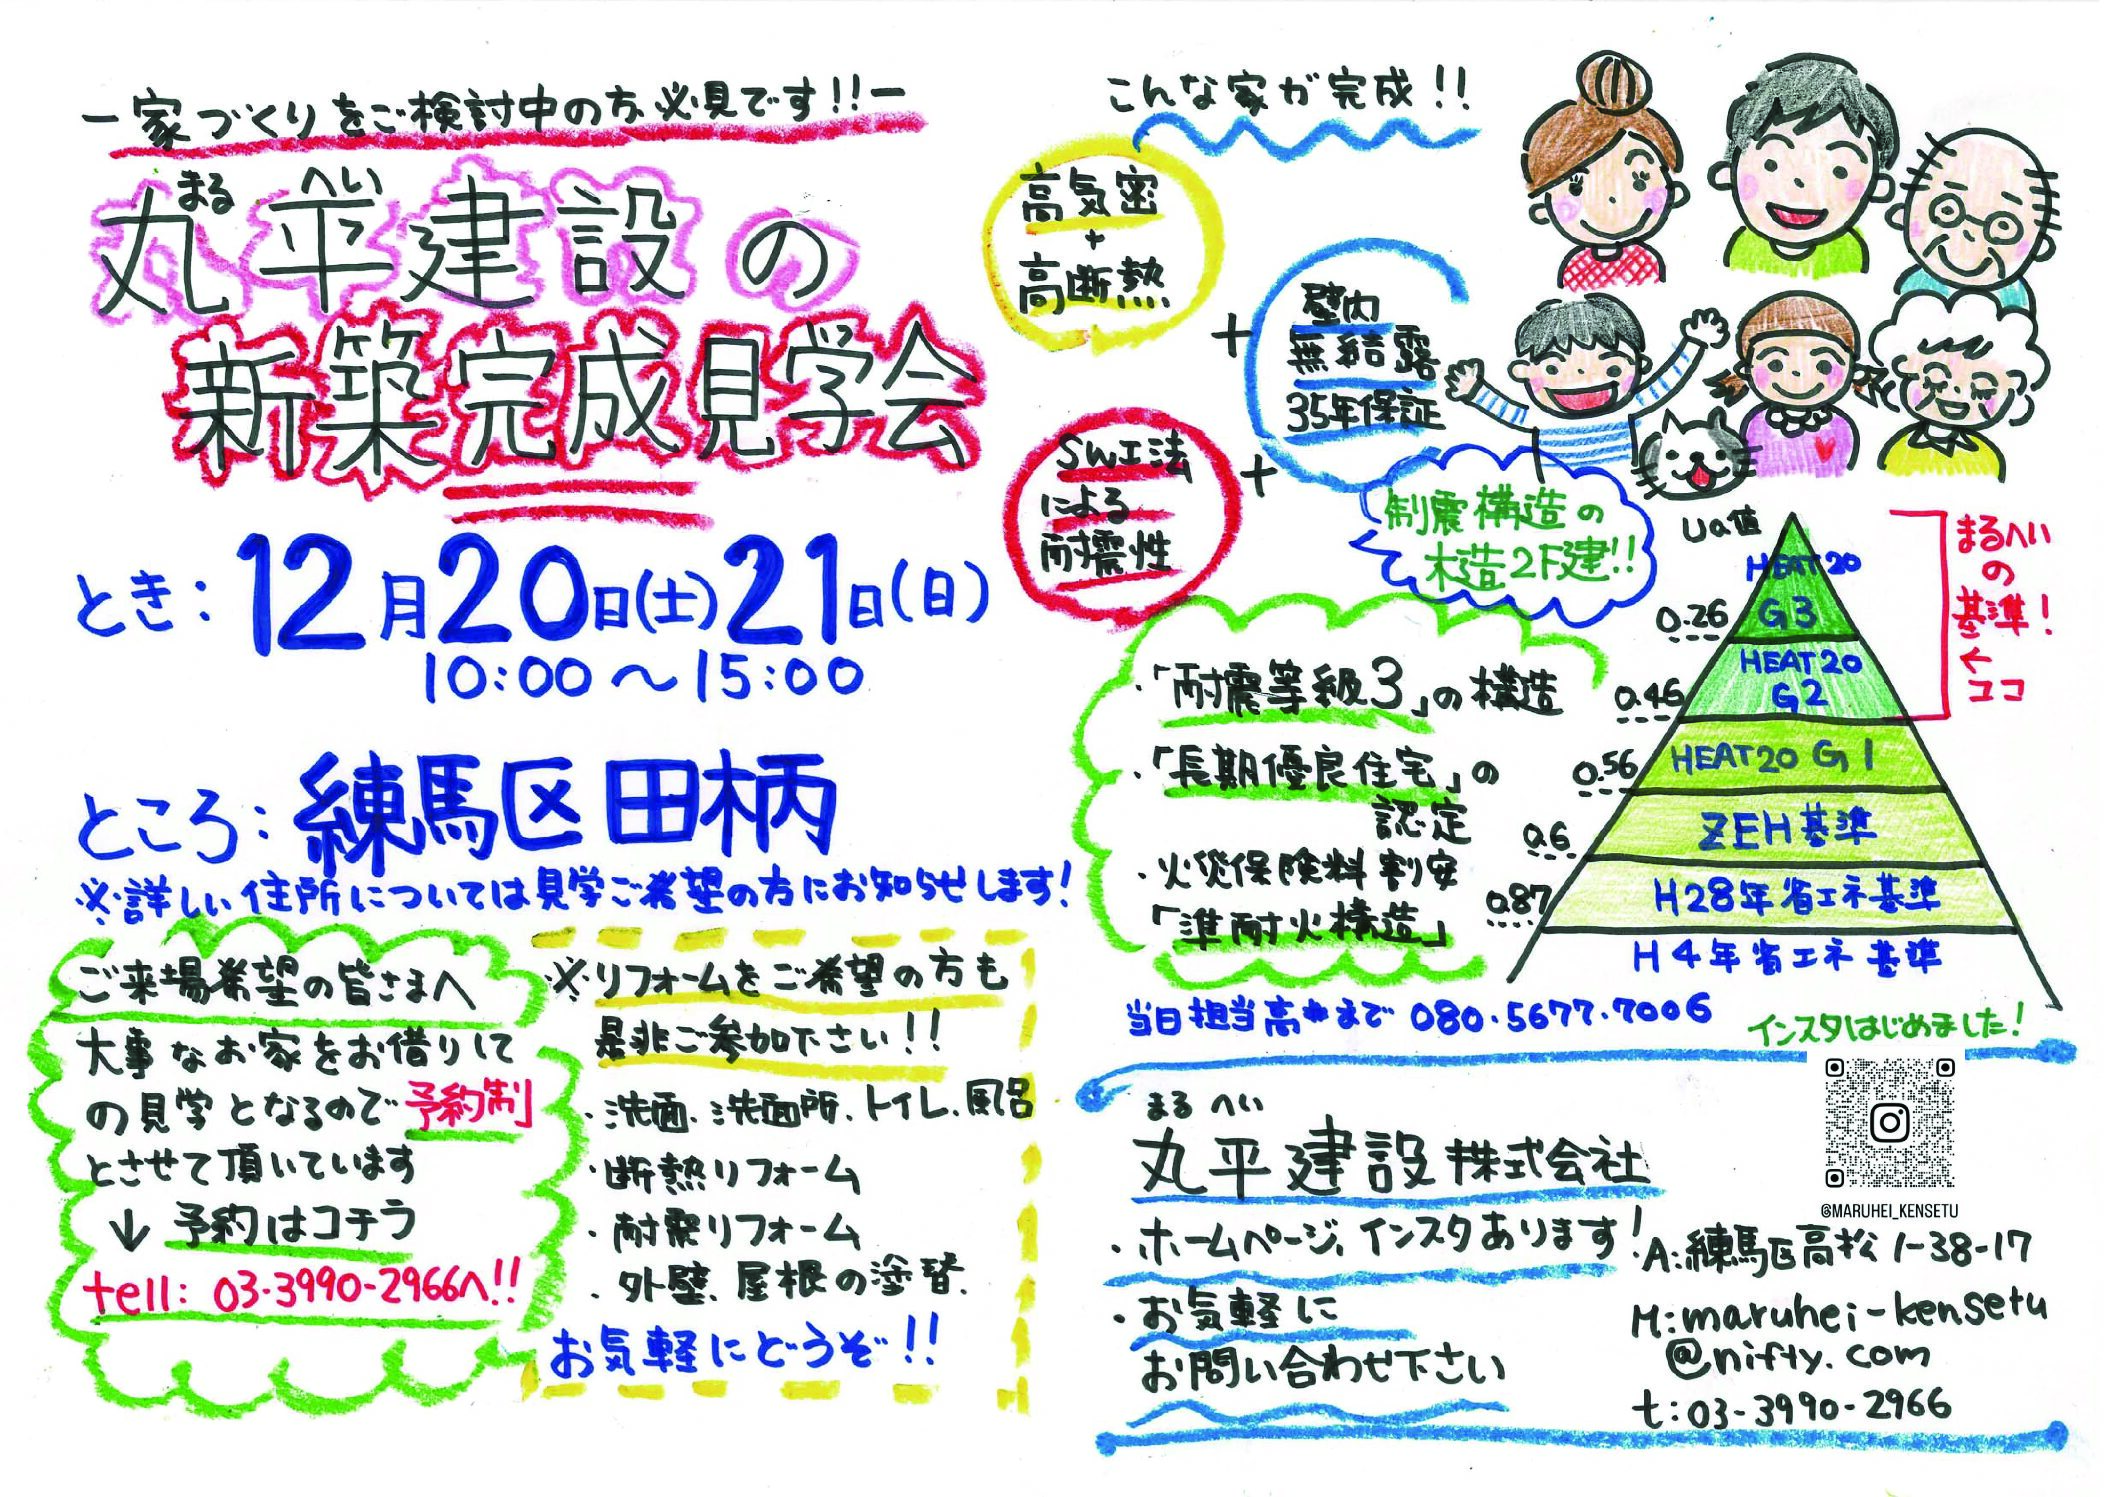 ー家づくりをご検討中の方、必見です!!ー
まる へい
丸平建設の
新築完成見学会
とき:12月20日(土)21日(日)
10:00〜15:00
ところ:練馬区田柄
※詳しい住所については見学ご希望の方にお知らせします!
ご来場希望の皆さまへ
大事なお家をお借りして
の見学となるので予約制
とさせて頂いています
↓予約はコチラ
tell:03-3990-2966へ!!
※リフォームをご希望の方も
是非ご参加下さい!!
・洗面、洗面所、トイレ、風呂
・断熱リフォーム
・耐震リフォーム
・外壁、屋根の塗替、
お気軽にどうぞ!!
こんな家が完成!!
高気密
+
高断熱
+
壁内
無結露
35年保証
+
SW工法
による
耐震性
制震構造の
木造2F建!!
・「耐震等級3」の構造
・「長期優良住宅」の
認定
・火災保険料割安
「準耐火構造」
Ua値
HEAT20
G3
0.26
HEAT20
G2
0.46
HEAT20 G1
0.56
ZEH基準
0.6
H28年省エネ基準
0.87
H4年省エネ基準
まるへい
の
基準!
←
ココ
当日担当高井まで 080.5677.7006
インスタはじめました!
@MARUHEI_KENSETU
まる へい
丸平建設株式会社
・ホームページ、インスタあります!
・お気軽に
お問い合わせ下さい
A:練馬区高松1-38-17
M:maruhei-kensetu
@nifty.com
t:03-3990-2966